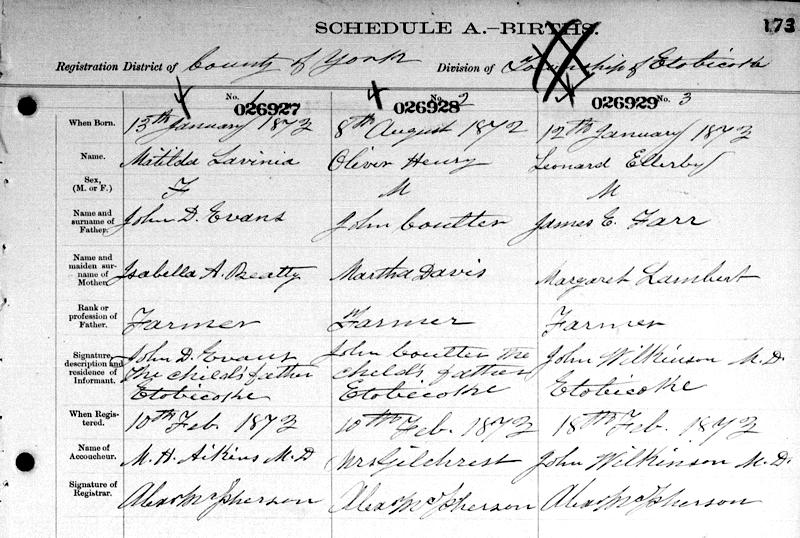 173
SCHEDULE A.—BIRTHS.
Registration District of County of York Division of Township of Etobicoke
No. 1 026927 No. 2 026928 No. 3 026929
When Born. 13th January 1873 8th August 1872 12th January 1873
Name. Matilda Lavinia Oliver Henry Leonard Ellerby
Sex, (M. or F.) F M M
Name and surname of Father. John D. Evans John Coulter James E. Farr
Name and maiden surname of Mother. Isabella A. Beatty Martha Davis Margaret Lambert
Rank or profession of Father. Farmer Farmer Farmer
Signature, description and residence of Informant. John D. Evans The child's father Etobicoke John Coulter The child's father Etobicoke John Wilkinson M.D. Etobicoke
When Registered. 10th Feb. 1873 10th Feb. 1873 18th Feb. 1873
Name of Accoucheur. M. H. Aikins M.D Mrs Gilchrist John Wilkinson M.D.
Signature of Registrar. Alex McPherson Alex McPherson Alex McPherson